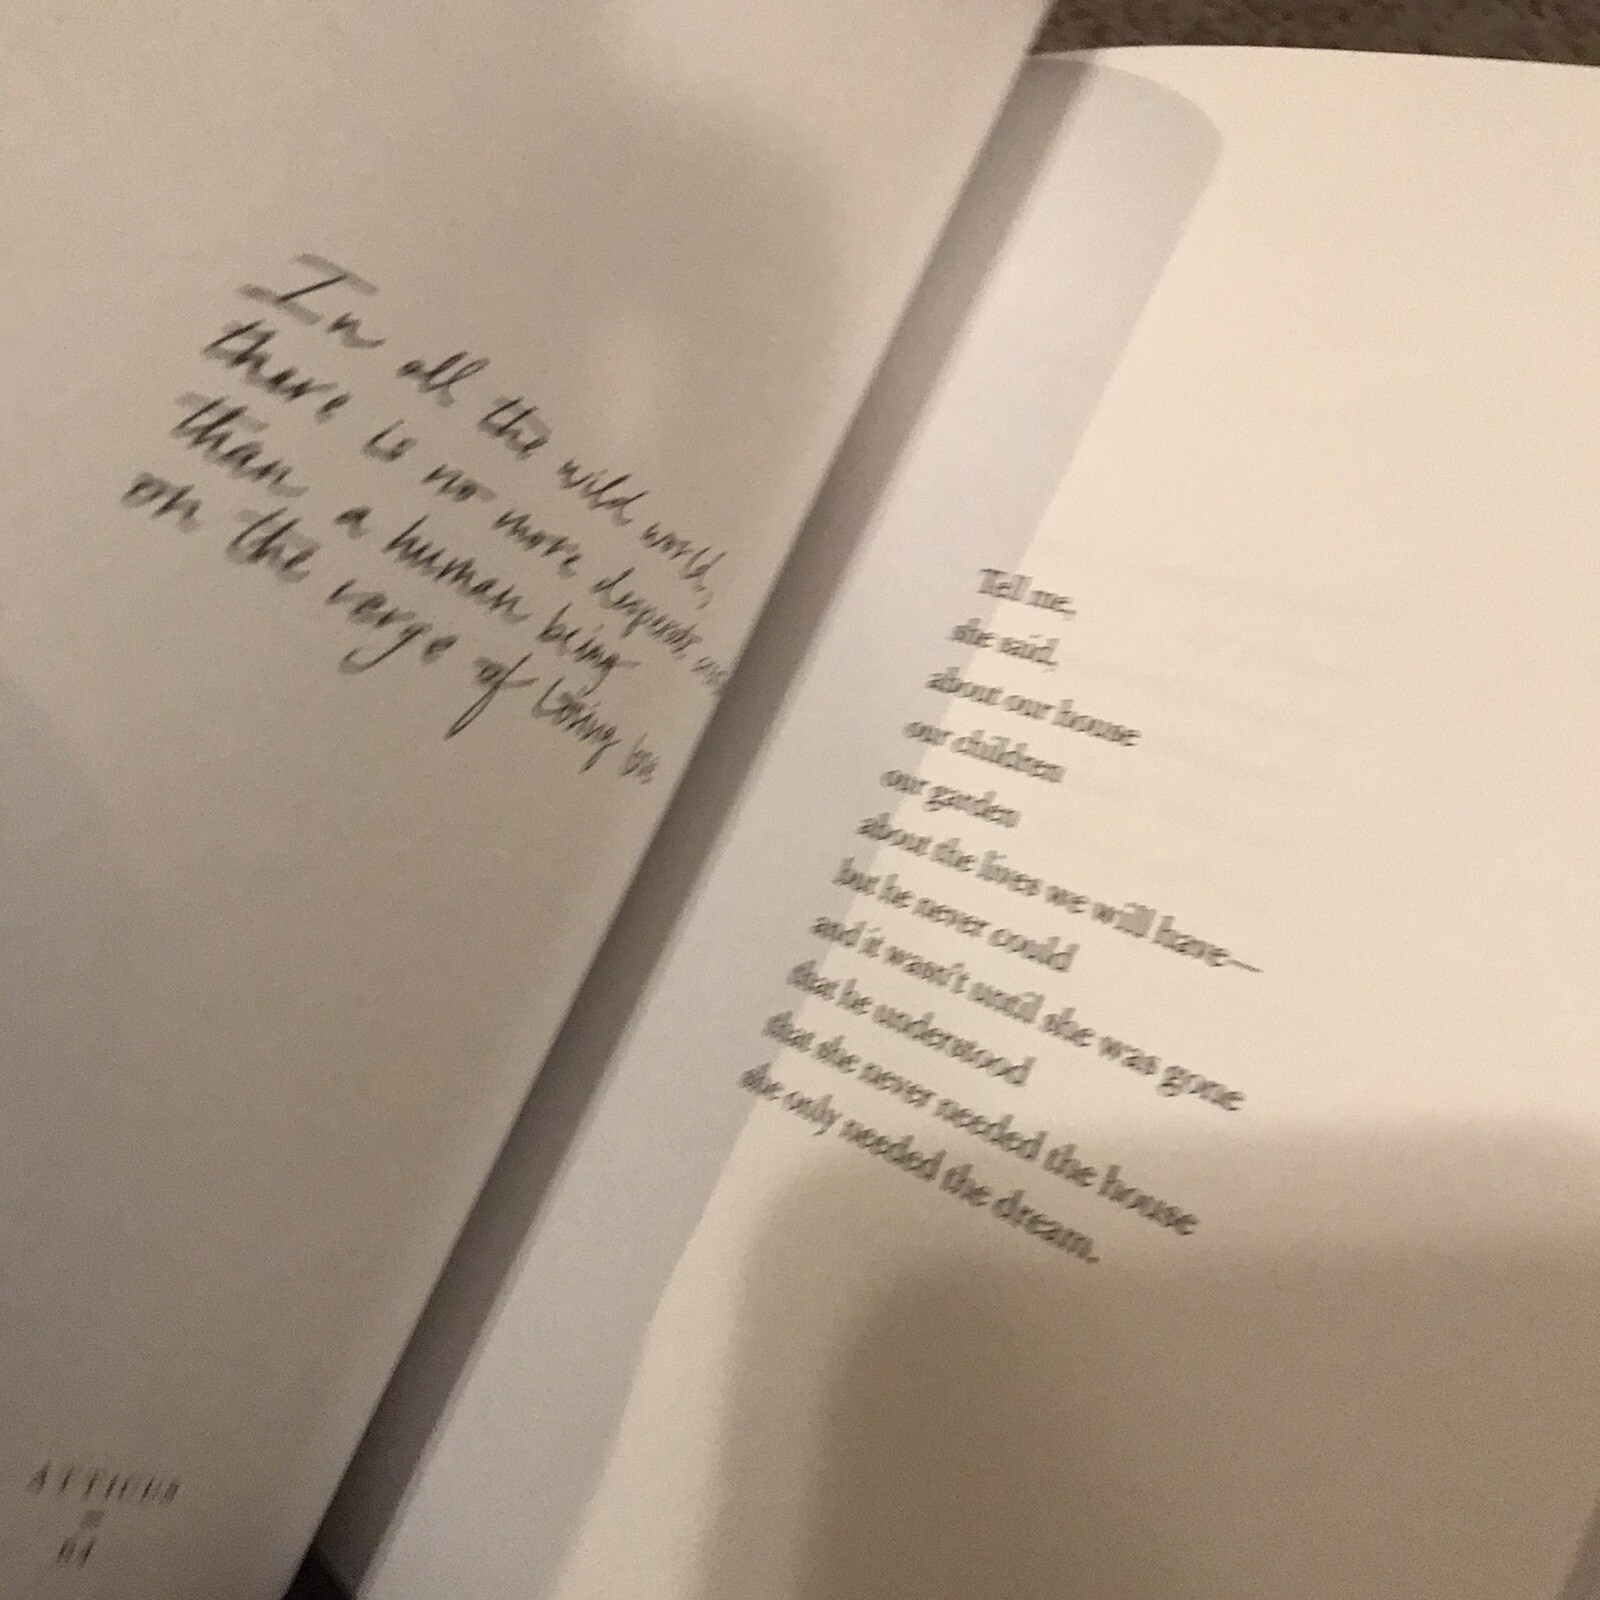 In all the wild world,
there is no more desperate
than a human being
on the verge of losing
ATTICUS
Tell me,
she said,
about our house
our children
our garden
about the lives we will have—
but he never could
and it wasn't until she was gone
that he understood
that she never needed the house
she only needed the dream.